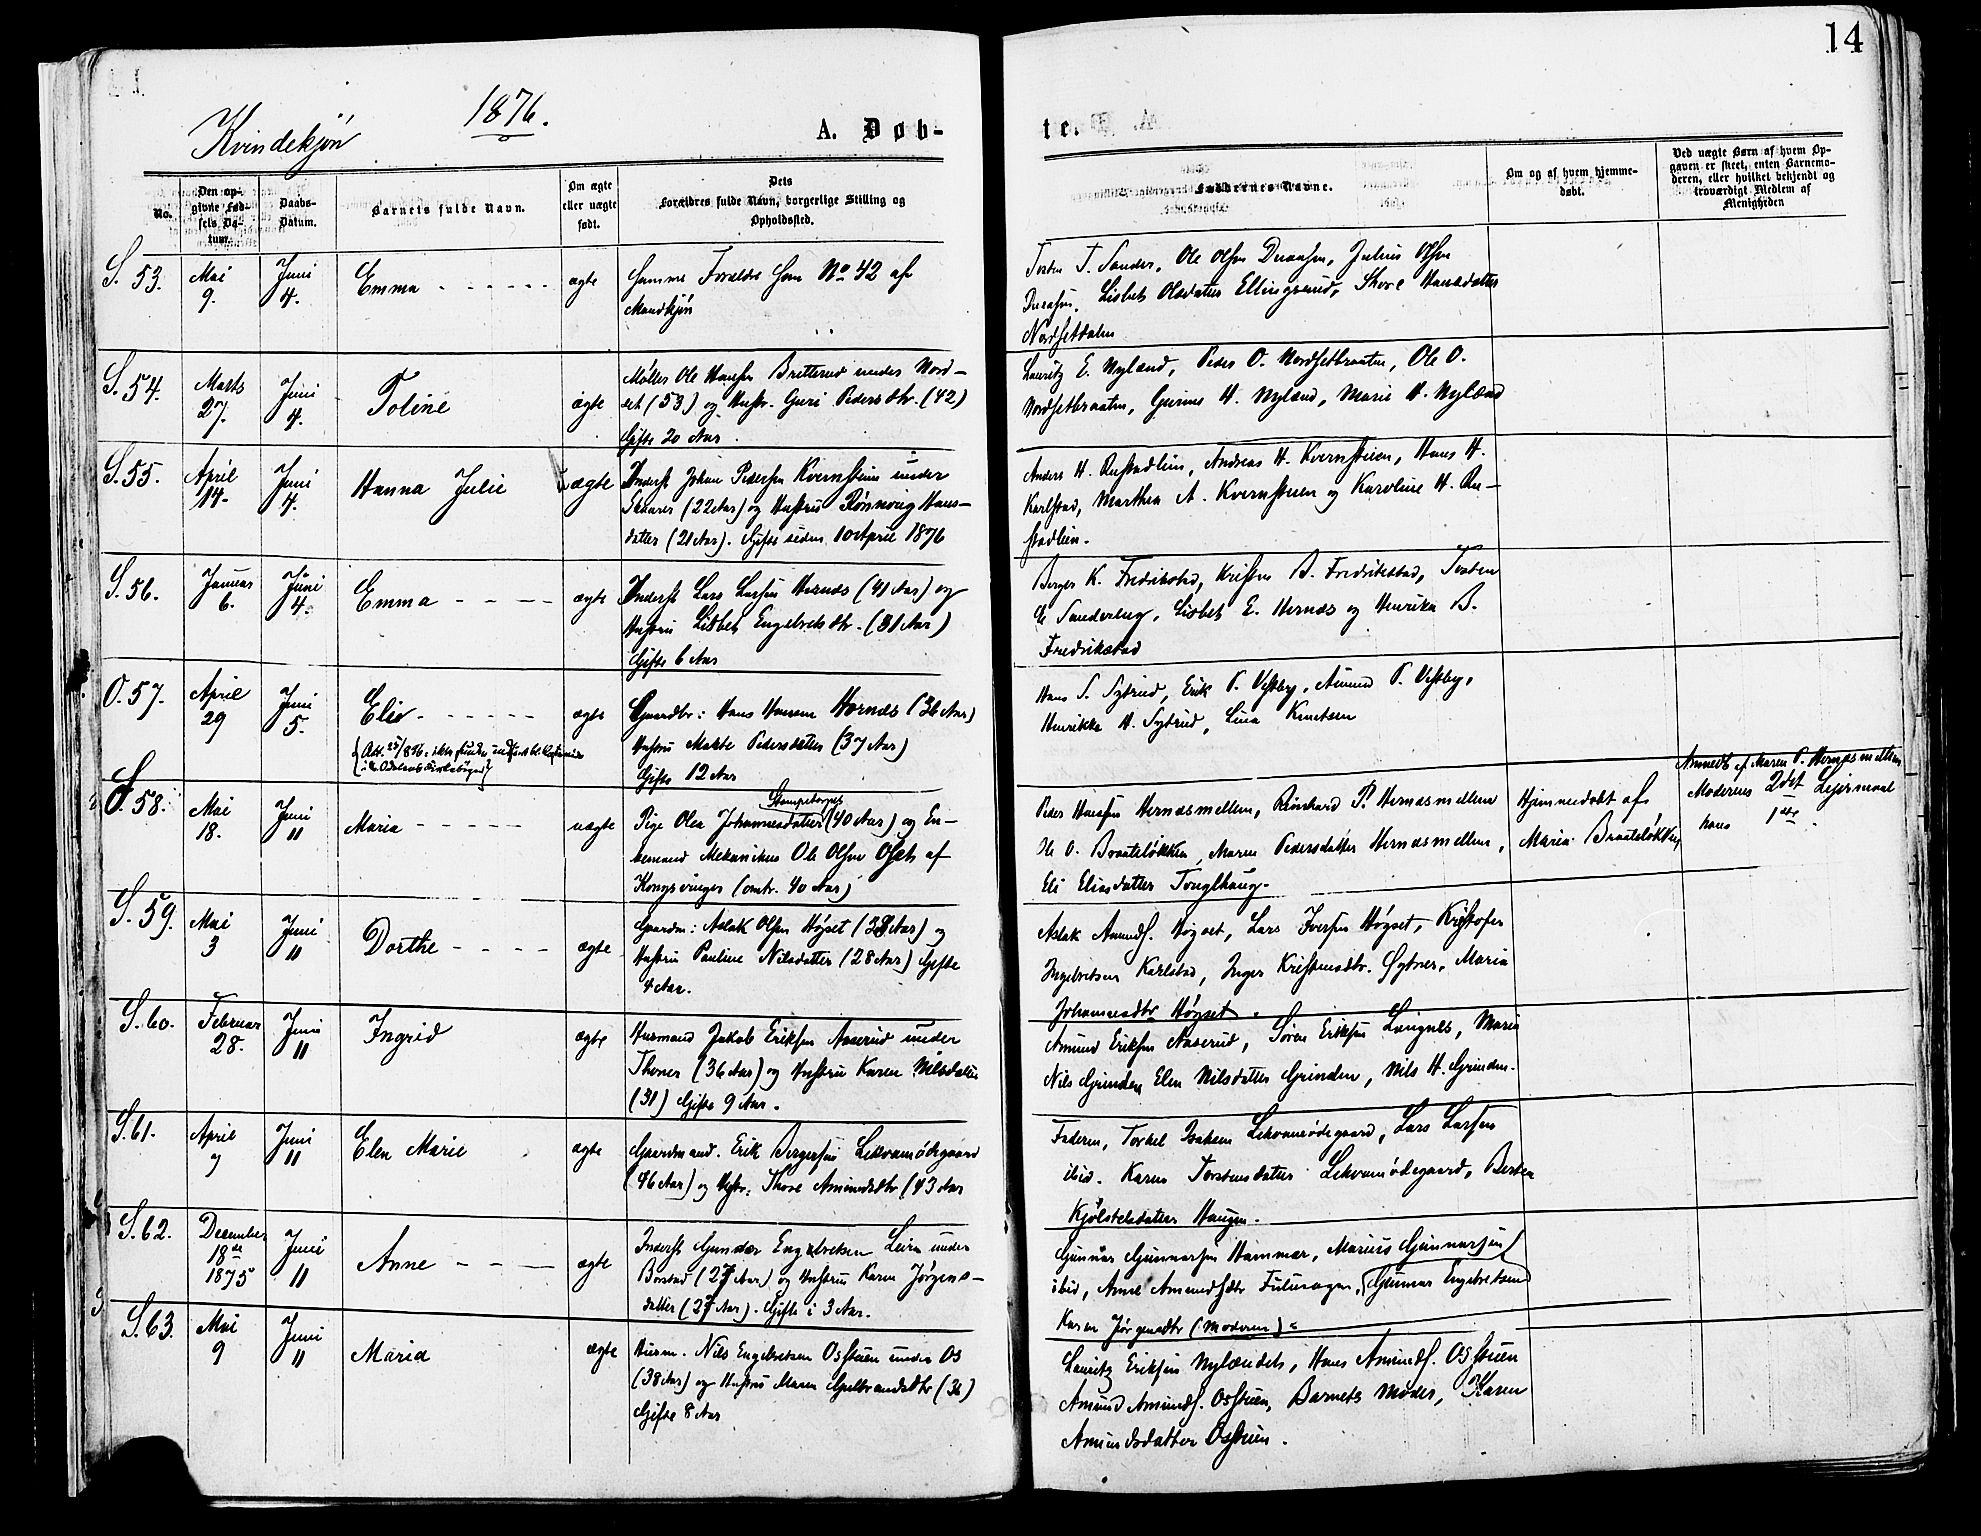 14
1876.
Kvindekjøn
A. Døb-
te.
No.
Den op-
givne Fød-
sels Da-
tum.
Daabs-
Datum.
Barnets fulde Navn.
Om ægte
eller uægte
født.
Dets
Forældres fulde Navn, borgerlige Stilling og
Opholdssted.
Faddernes Navne.
Om og af hvem hjemme-
døbt.
Ved uægte Børn af hvem Op-
gaven er skeet, enten Barnemo-
deren, eller hvilket bekjendt og
troværdigt Medlem af
Menigheden
S. 53. Mai 9. Juni 4. Emma ægte
Samme Forældre som No 42 af
Mandkjøn
Torsten T. Sander, Ole Olsen Durasen, Julius Olsen
Durasen. Lisbet Olsdatter Ellingsrud, Thore Hansdatter
Nordsetdalen
S. 54. Marts 27. Juni 4. Toline ægte
Møller Ole Hansen Britterud under Nord-
set (53) og Hustr. Guri Pedersdtr. (42)
Gifte 20 Aar
Lauritz E. Nyland, Peder O. Nordsetbraaten, Ole O.
Nordsetbraaten, Gunine H. Nyland, Marie H. Nyland
S. 55. April 14. Juni 4. Hanna Julie uægte
Inderst Johan Pedersen Kvernstuen under
Skaarer (22 Aar) og Hustru Rønnoug Hans-
datter (21 Aar). Gifte siden 10 April 1876
Anders H. Rustadlien, Andreas H. Kvernstuen, Hans H.
Karlstad, Marthea A. Kvernstuen og Karoline H. Ru-
stadlien.
S. 56. Januar 6. Juni 4. Emma ægte
Inderst Lars Larsen Hernæs (41 Aar) og
Hustru Lisbet Engebretsdtr. (31 Aar)
Gifte 6 Aar
Berger K. Fredrikstad, Kristen B. Fredrikstad, Torsten
Lisbet E. Hernæs og Henrika B.
Fredrikstad
O. 57. April 29 Juni 5. Elise ægte
Gaardbr: Hans Hansen Hornæs (36 Aar)
Hustru Marte Pedersdatter (37 Aar)
Gifte 12 Aar
Hans S. Sydrud, Erik P. Vestby, Amund P. Vestby,
Henrikke H. Sydrud, Lina Knutsen
S. 58. Mai 18. Juni 11 Maria uægte
Stampetorpet
Pige Olea Johannesdatter (40 Aar) og En-
kemand Mekanikus Ole Olsen Oset af
Kongsvinger (omtr. 40 Aar)
Peder Hansen Hernæsmellem, Reinhard P. Hernæsmellem
Ole O. Braateløkken, Maren Pedersdatter Hernæsmellem,
Eli Eliasdatter Tonglhaug.
Hjemmedøbt af
Maria Braateløkken
Anmeldt af Maren P. Hernæsmellem
Moderens 2det Leiermaal
hans 1ste
S. 59. Mai 3 Juni 11 Dorthe ægte
Gaardm: Aslak Olsen Høgset (38 Aar) og
Hustru Pauline Nilsdatter (28 Aar) Gifte
4 Aar.
Aslak Amunds. Høgset, Lars Iversen Høgset, Kristofer
Ingebretsen Karlstad, Inger Kristensdtr. Sydner, Maria
Johannesdtr Høgset.
S. 60. Februar 28. Juni 11 Ingrid ægte
Husmand Jakob Eriksen Aaserud under
Thoner (36 Aar) og Hustru Karen Nilsdatter
(31) Gifte 9 Aar.
Amund Eriksen Aaserud, Søren Eriksen Langnes, Marie
Nils Grinden Elen Nilsdatter Grinden, Nils H. Grinden.
S. 61. April 7 Juni 11 Elen Marie ægte
Gaardmand. Erik Bergersen Lekvamødegaard
(46 Aar) og Hustr: Thore Amundsdtr (43 Aar
Faderen, Torkel Isaksen Lekvamødegaard, Lars Larsen
ibid. Karen Torstensdatter Lekvamødegaard, Berthe
Kjølstelsdatter Haugen.
S. 62. December 18de 1875 Juni 11 Anne ægte
Inderst Gunder Engebretsen Leiren under
Borstad (27 Aar) og Hustru Karen Jørgens-
datter (27 Aar). Gifte i 3 Aar.
Gunnar Gunnarsen Hammer, Marius Gunnarsen
ibid, Anne Amundsdtr Fulusagen, (Gunnar Engebretsen
Karen Jørgensdtr (Moderen)
S. 63. Mai 9 Juni 11 Maria ægte
Husm. Nils Engebretsen Osstuen under Os
(38 Aar) og Hustru Maren Gulbrandsdtr (36)
Gifte 8 Aar
Lauritz Eriksen Nylændet, Hans Amunds. Osstuen
Amund Amunds. Osstuen, Barnets Moder, Karen
Amundsdatter Osstuen.